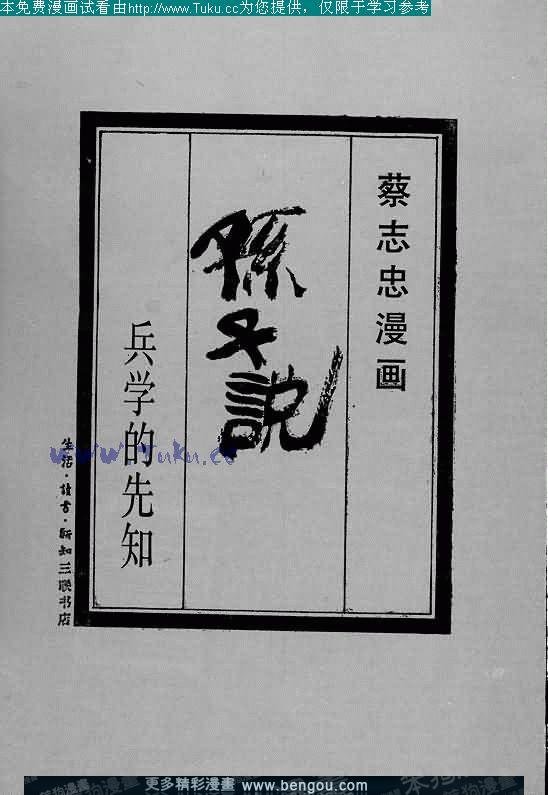 本免费漫画试看由http://www.Tuku.cc为您提供，仅限于学习参考
蔡志忠漫画
孫子説
兵学的先知
www.Tuku.cc
生活·讀書·新知三联书店
更多精彩漫畫 www.bengou.com
笨狗漫畫